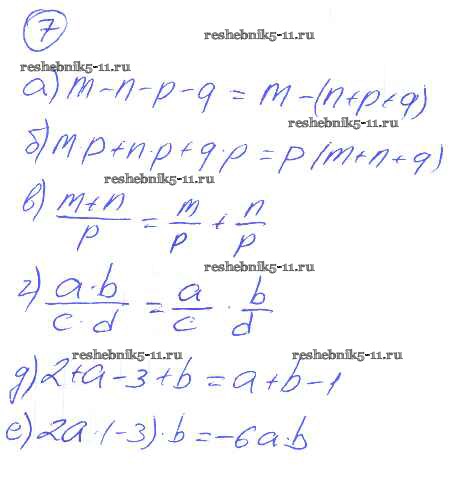 7
reshebnik5-11.ru
reshebnik5-11.ru
а) m-n-p-q = m-(n+p+q)
reshebnik5-11.ru
б) mp+n·p+q·p=p(m+n+q)
reshebnik5-11.ru
в) \frac{m+n}{p} = \frac{m}{p} + \frac{n}{p}
reshebnik5-11.ru
г) \frac{a·b}{c·d} = \frac{a}{c} · \frac{b}{d}
reshebnik5-11.ru reshebnik5-11.ru
д) 2+a-3+b=a+b-1
е) 2a·(-3)·b=-6a·b